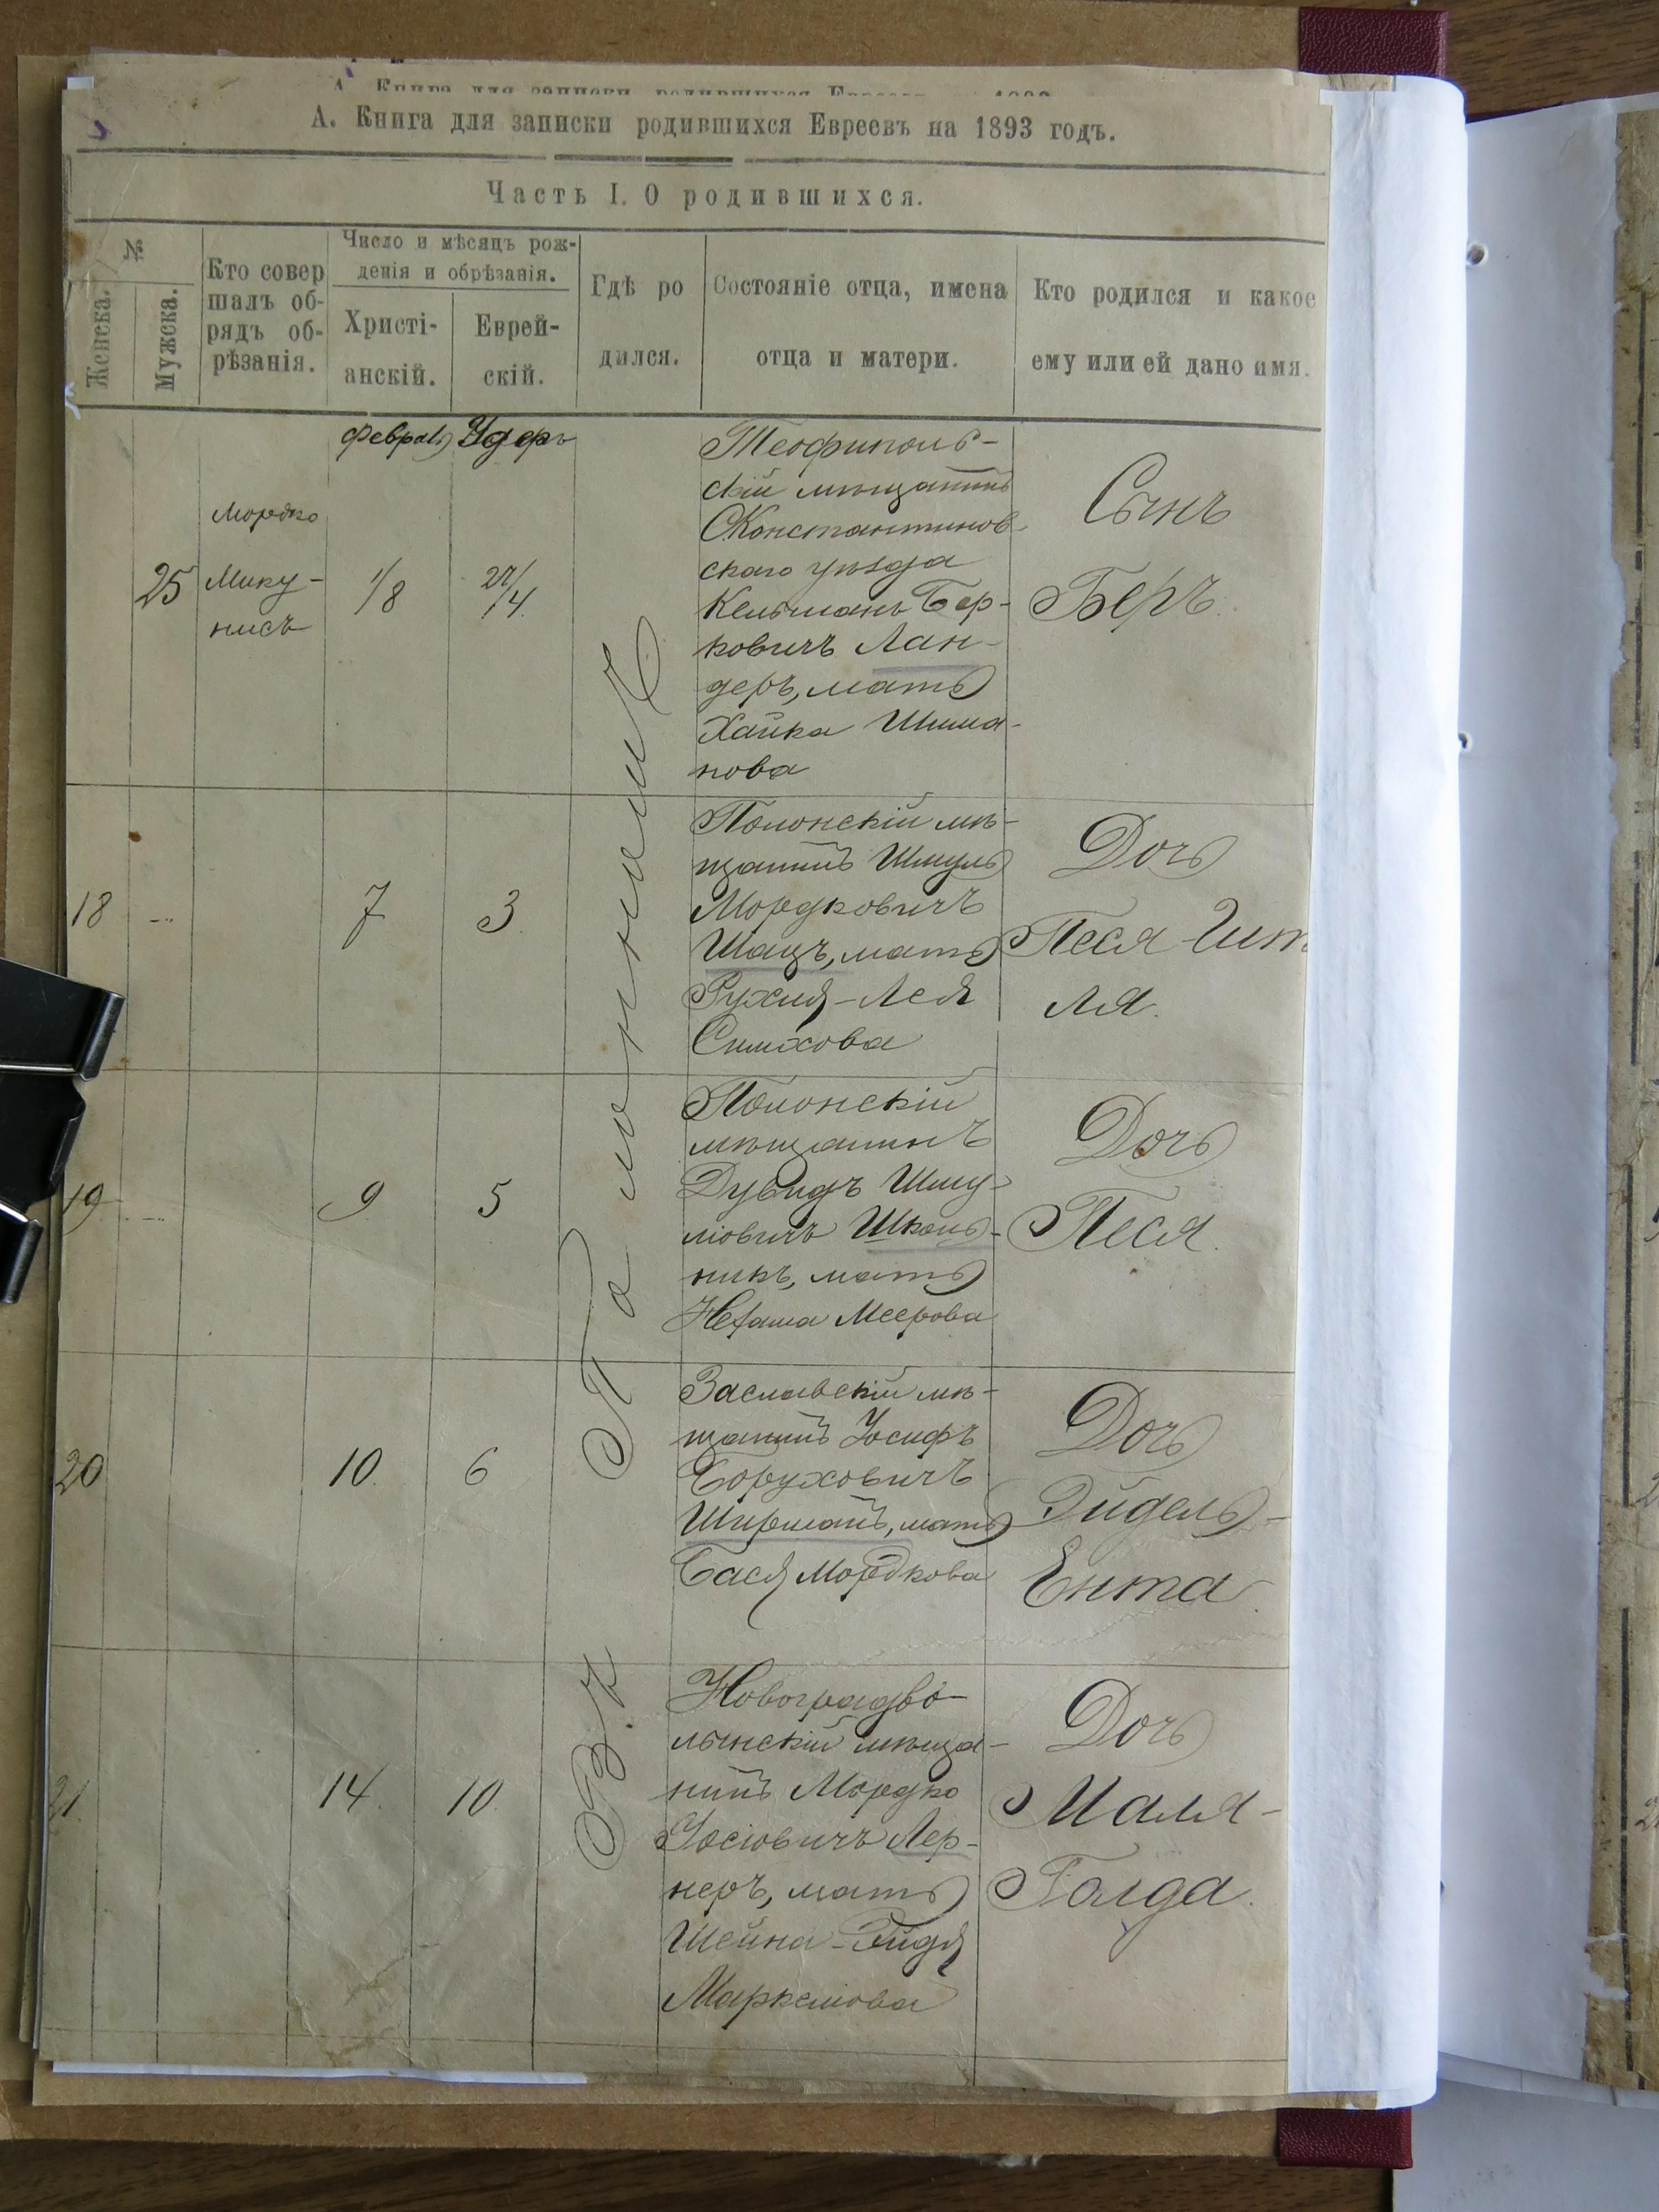 А. Книга для записки родившихся Евреевъ на 1893 годъ.
Часть I. О родившихся.
№
Женска.
Мужска.
Кто совер
шалъ об-
рядъ об-
рѣзанія.
Число и мѣсяцъ рож-
денія и обрѣзанія.
Христі-
анскій.
Еврей-
скій.
Гдѣ ро
дился.
Состояніе отца, имена
отца и матери.
Кто родился и какое
ему или ей дано имя.
25
Мордко
Мику-
нисъ
Феврал
1/8
Удеръ
27/4
Теофиполь-
скій мѣщанинъ
Константинов-
скаго уѣзда
Кельманъ Бер-
ковичъ Лан-
деръ, мать
Хайка Шима-
нова
Сынъ
Беръ.
18
7
3
Полонскій мѣ-
щанинъ Шмуль
Мордковичъ
Шацъ, мать
Рухля-Лея
Симхова
Дочь
Песя
ля.
19
9
5
Полонскій
мѣщанинъ
Дувидъ Шму-
ліовичъ Школь-
никъ, мать
Нехама Меерова
Дочь
Песя.
20
10.
6
Заславскій мѣ-
щанинъ Іосифъ
Боруховичъ
Ширманъ, мать
Бася Мордкова
Дочь
Эйдель-
Ента.
21
14.
10.
Новоградво-
лынскій мѣща-
нинъ Мордко
Іосіовичъ Лер-
неръ, мать
Шейна-Эйдя
Маркемова
Дочь
Маля-
Голда.
В. м. Полонномъ